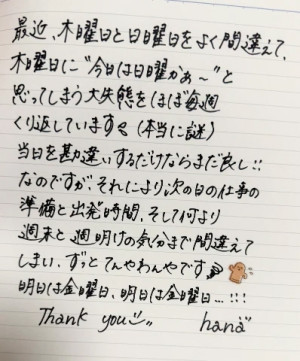 最近、木曜日と日曜日をよく間違えて、
木曜日に"今日は日曜かぁ〜"と
思ってしまう大失態をほぼ毎週
くり返しています（本当に謎）
当日を勘違いするだけならまだ良し!!
なのですが、それにより次の日の仕事の
準備と出発時間、そして何より
週末と週明けの気分まで間違えて
しまい、ずっとてんやわんやです
明日は金曜日、明日は金曜日…!!!
Thank you hana